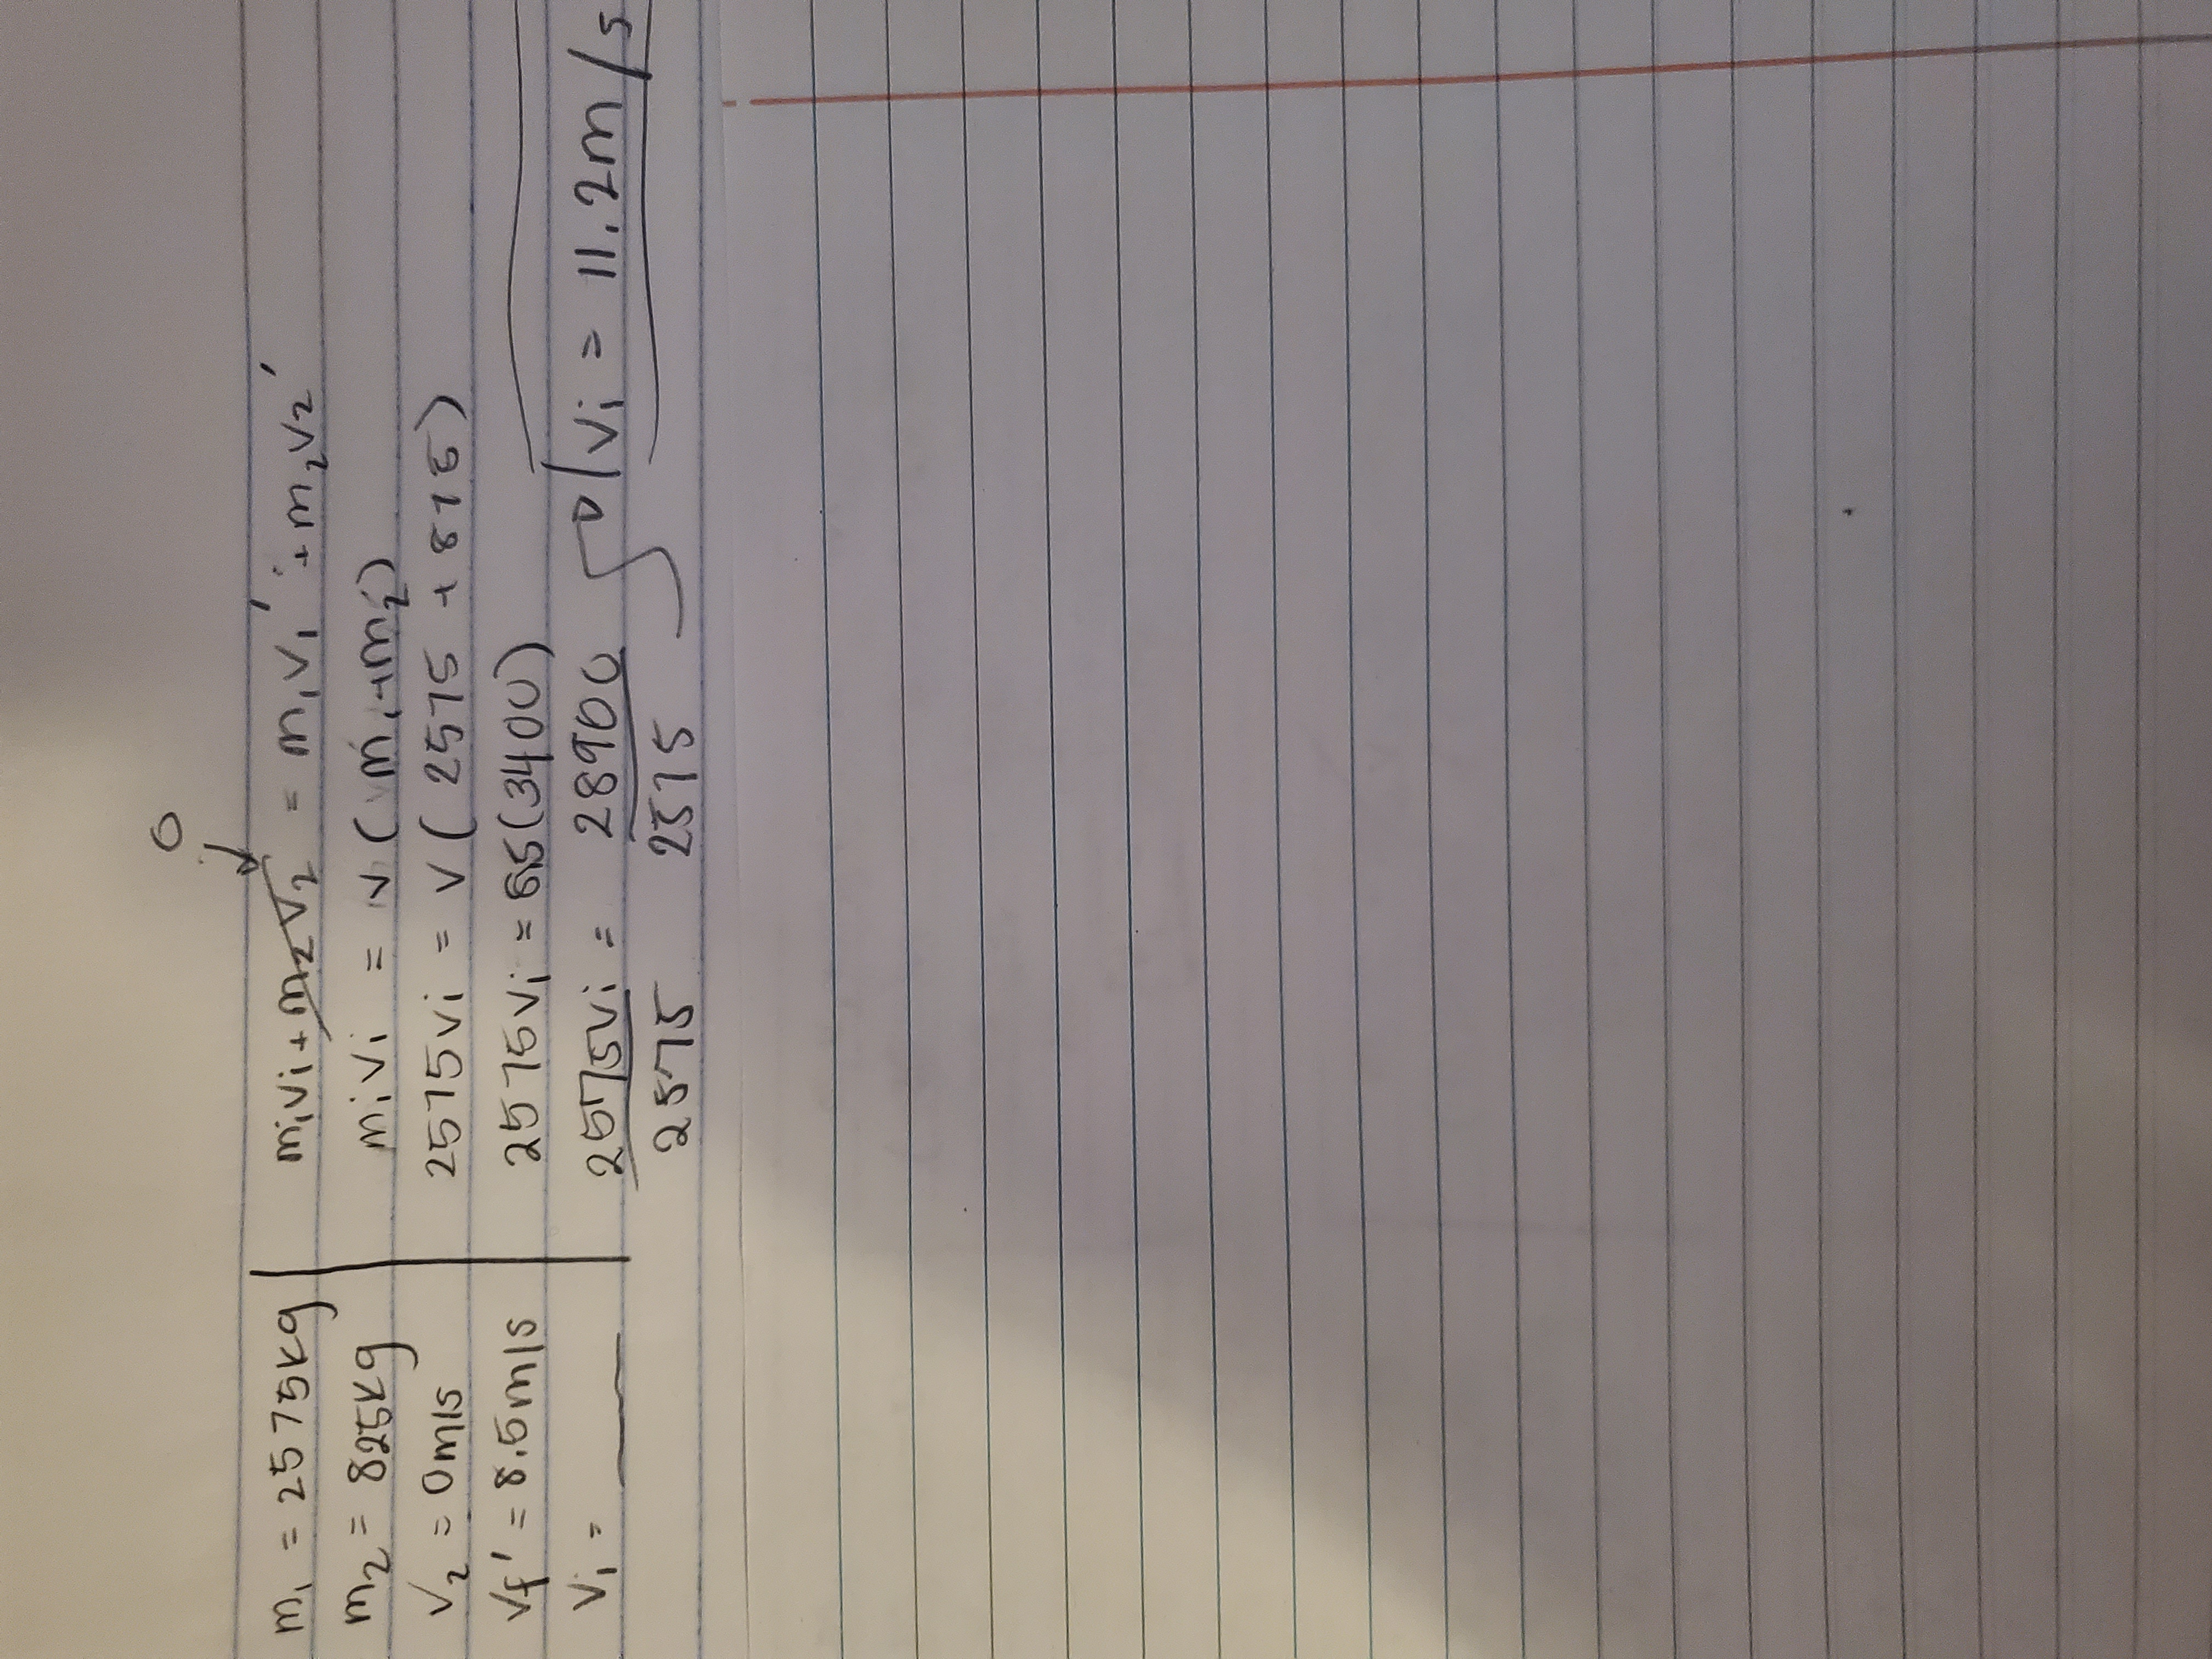 m₁ = 2575kg
m₂ = 825kg
V₂ = 0m/s
Vf' = 8.5m/s
V₁ = ___
0
m₁v₁ + m₂V₂ = m₁v₁' + m₂v₂'
m₁v₁ = v(m₁+m₂)
2575v₁ = v(2575 + 825)
2575v₁ = 8.5(3400)
2575v₁ = 28900
2575 2575
V₁ = 11.2m/s